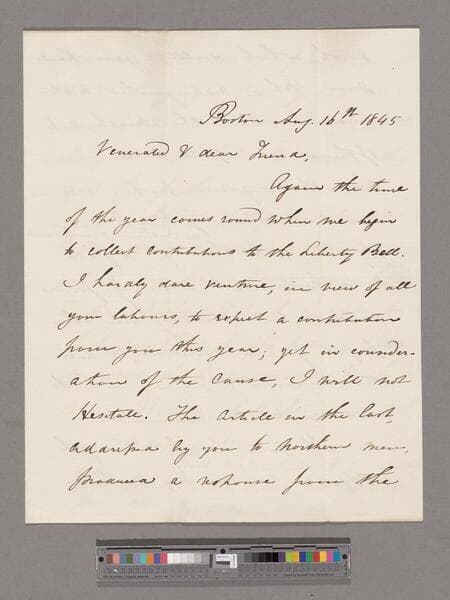 Boston Aug. 16th 1845
Venerated & dear Friend,
Again the time
of the year comes round when we begin
to collect contributions to the Liberty Bell.
I hardly dare venture, in view of all
your labours, to expect a contribution
from you this year; yet in consider-
ation of the cause, I will not
Hesitate. The article in the last,
addressed by you to Northern men,
produced a response from the